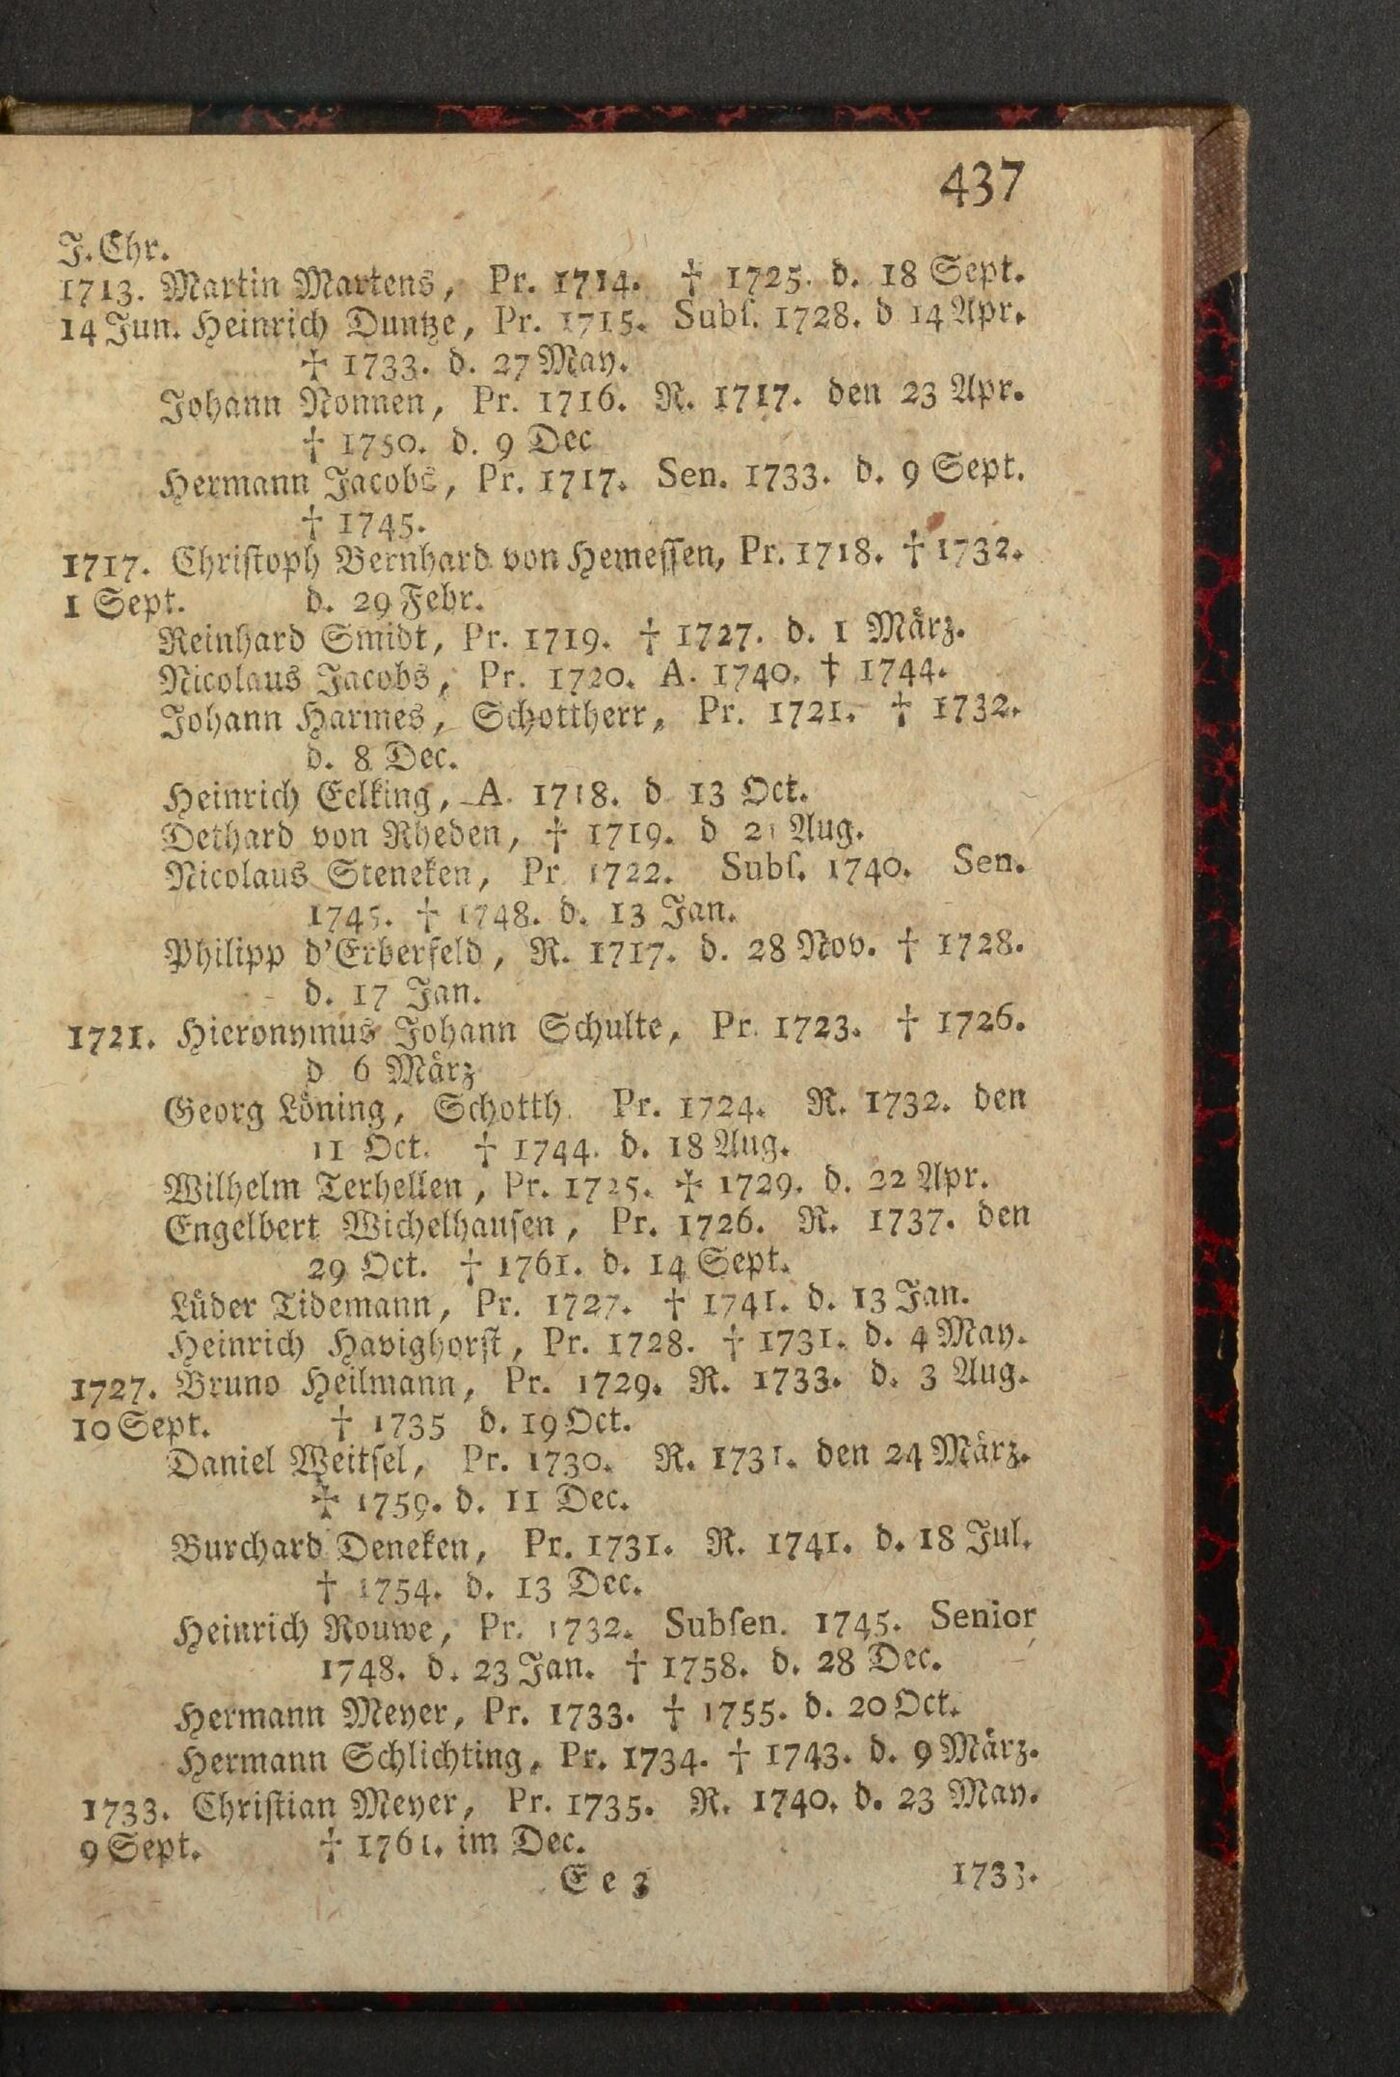 437
J. Chr.
1713. Martin Martens, Pr. 1714. † 1725. d. 18 Sept.
14 Jun. Heinrich Duntze, Pr. 1715. Subſ. 1728. d 14 Apr.
† 1733. d. 27 May.
Johann Nonnen, Pr. 1716. R. 1717. den 23 Apr.
† 1750. d. 9 Dec
Hermann Jacobs, Pr. 1717. Sen. 1733. d. 9 Sept.
† 1745.
1717. Chriſtoph Bernhard von Hemeſſen, Pr. 1718. † 1732.
1 Sept. d. 29 Febr.
Reinhard Smidt, Pr. 1719. † 1727. d. 1 März.
Nicolaus Jacobs, Pr. 1720. A. 1740. † 1744.
Johann Harmes, Schottherr, Pr. 1721. † 1732.
d. 8 Dec.
Heinrich Eelking, A. 1718. d 13 Oct.
Dethard von Rheden, † 1719. d 21 Aug.
Nicolaus Steneken, Pr 1722. Subſ. 1740. Sen.
1745. † 1748. d. 13 Jan.
Philipp d'Erberfeld, R. 1717. d. 28 Nov. † 1728.
d. 17 Jan.
1721. Hieronymus Johann Schulte, Pr. 1723. † 1726.
d 6 März
Georg Löning, Schotth. Pr. 1724. R. 1732. den
11 Oct. † 1744. d. 18 Aug.
Wilhelm Terhellen, Pr. 1725. † 1729. d. 22 Apr.
Engelbert Wichelhauſen, Pr. 1726. R. 1737. den
29 Oct. † 1761. d. 14 Sept.
Lüder Tidemann, Pr. 1727. † 1741. d. 13 Jan.
Heinrich Havighorſt, Pr. 1728. † 1731. d. 4 May.
1727. Bruno Heilmann, Pr. 1729. R. 1733. d. 3 Aug.
10 Sept. † 1735 d. 19 Oct.
Daniel Weitſel, Pr. 1730. R. 1731. den 24 März.
† 1759. d. 11 Dec.
Burchard Deneken, Pr. 1731. R. 1741. d. 18 Jul.
† 1754. d. 13 Dec.
Heinrich Rouwe, Pr. 1732. Subſen. 1745. Senior
1748. d. 23 Jan. † 1758. d. 28 Dec.
Hermann Meyer, Pr. 1733. † 1755. d. 20 Oct.
Hermann Schlichting, Pr. 1734. † 1743. d. 9 März.
1733. Chriſtian Meyer, Pr. 1735. R. 1740. d. 23 May.
9 Sept. † 1761. im Dec.
E e 3 1733.